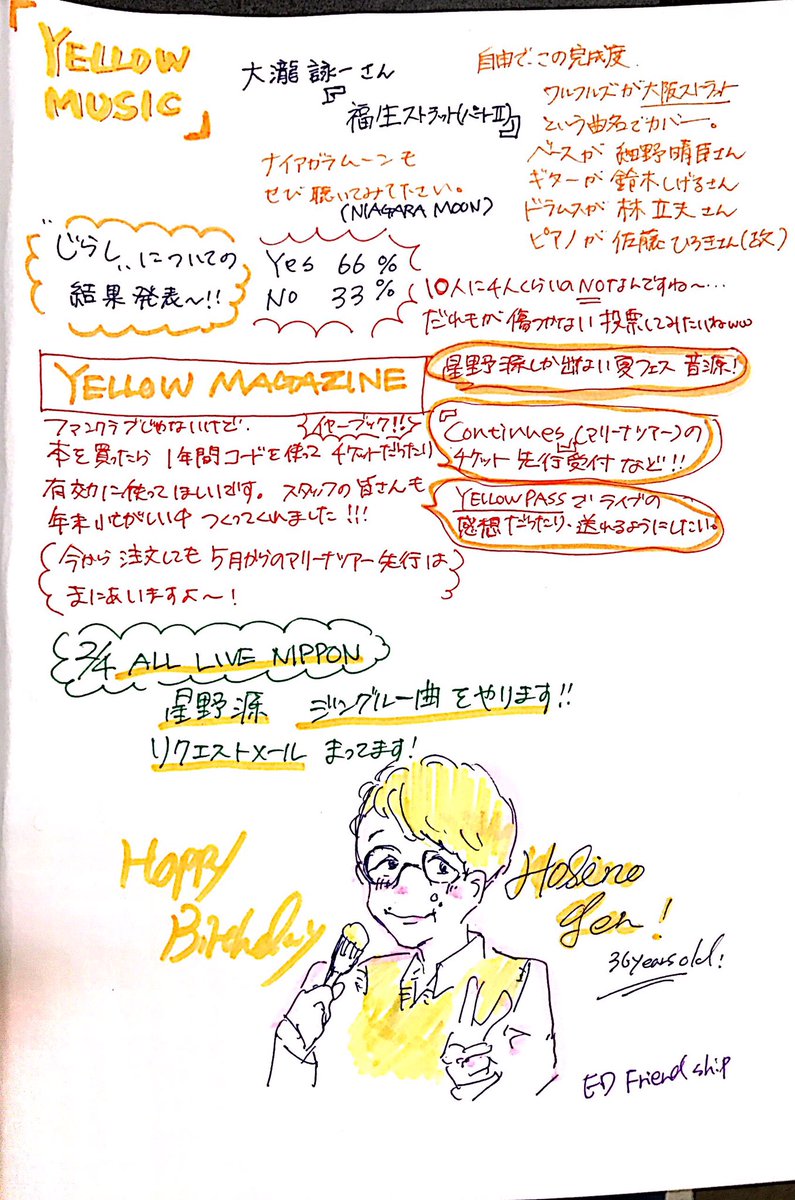 YELLOW
MUSIC」
大瀧詠一さん
『福生ストラット(パートⅡ)』
自由で、この完成度
ウルフルズが大阪ストラット
という曲名でカバー。
ベースが 細野晴臣さん
ギターが 鈴木しげるさん
ドラムスが 林立夫さん
ピアノが 佐藤ひろきさん(故)
ナイアガラムーンも
ぜひ聴いてみてください。
(NIAGARA MOON)
"じらし"についての
結果発表〜!!
Yes 66%
No 33%
10人に4人くらいのNOなんですね〜…
だれもが傷つかない投票してみたいねww
YELLOW MAGAZINE
ファンクラブじゃないけど、
イヤーブック!!
本を買ったら1年間コードを使ってチケットだったり
有効に使ってほしいです。スタッフの皆さんも
年末忙しい中つくってくれました!!!
今から注文しても5月からのアリーナツアー先行は
まにあいますよ〜!
星野源しか出ない夏フェス音源!
『Continues』(アリーナツアー)の
チケット先行受付など!!
YELLOW PASSでライブの
感想だったり、送れるようにしたい。
2/4 ALL LIVE NIPPON
星野源 ジングル一曲をやります!!
リクエストメール まってます!
Happy
Birthday
Hosino
Gen!
36years old!
ED Friend ship